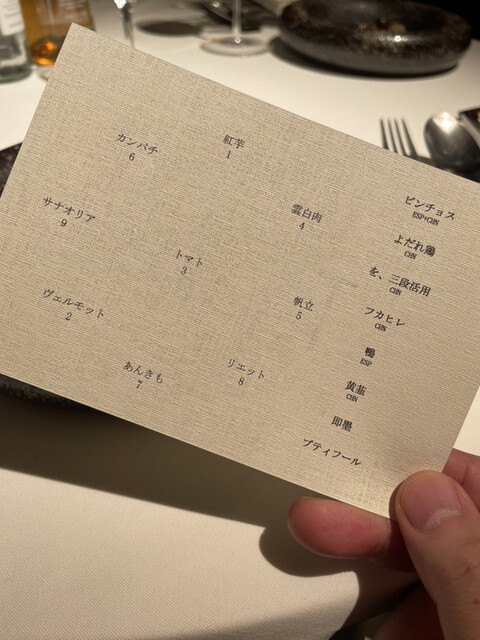 カンパチ
6
紅芋
1
サナオリア
9
トマト
3
雲白肉
4
ヴェルモット
2
帆立
5
あんきも
7
リエット
8
ピンチョス
ESP×CHN
よだれ鶏
CHN
を、三段活用
CHN
フカヒレ
CHN
鴨
ESP
黄韮
CHN
即墨
プティフール